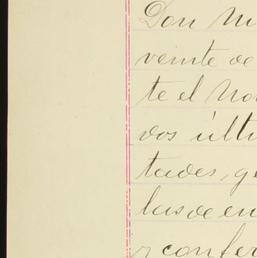 Don M
veinte de
te el No
dos últi
tades, g
las de en
y confer